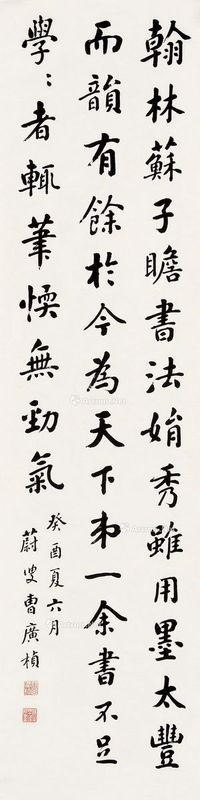 翰林蘇子瞻書法娟秀雖用墨太豐
而韻有餘於今為天下弟一余書不足
學：者輒筆愞無勁氣
癸酉夏六月
蔚叟曹廣楨